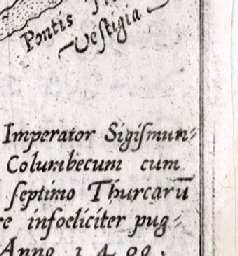 Pontis
Vestigia
Imperator Sigiſmun⸗
Columbecum cum
ſeptimo Thurcarū
re infoeliciter pug⸗
Anno 1400.